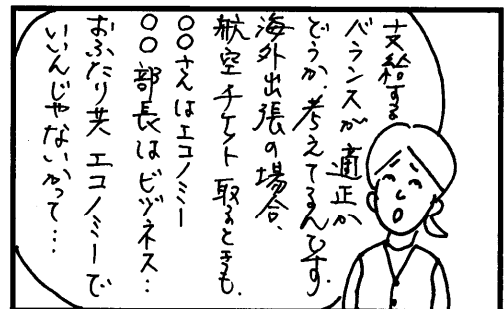 支給する
バランスが適正か
どうか、考えてるんです。
海外出張の場合、
航空チケット取るときも、
〇〇さんはエコノミー
〇〇部長はビジネス…
おふたり共エコノミーで
いいんじゃないかって…